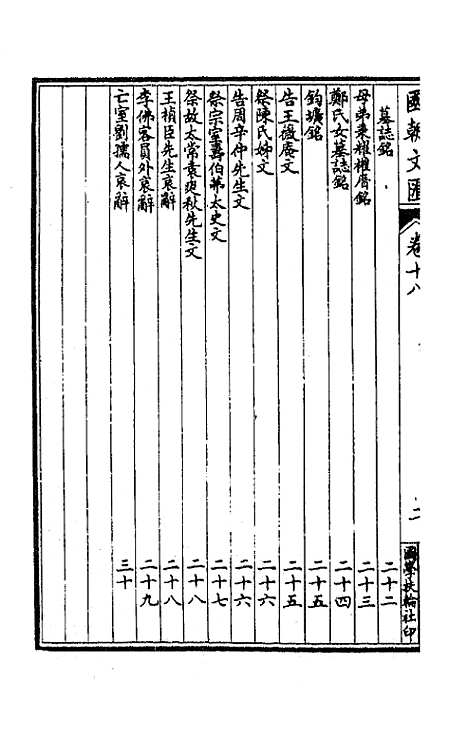 國朝文匯 卷十八 二 國學扶輪社印
墓誌銘 二十二
母弟秉耀權厝銘 二十三
鄭氏女墓誌銘 二十四
鈞壙銘 二十五
告王薇庵文 二十五
祭陳氏姊文 二十六
告周辛仲先生文 二十六
祭宗室壽伯茀太史文 二十七
祭故太常袁爽秋先生文 二十八
王楨臣先生哀辭 二十八
李佛客員外哀辭 二十九
亡室劉孺人哀辭 三十